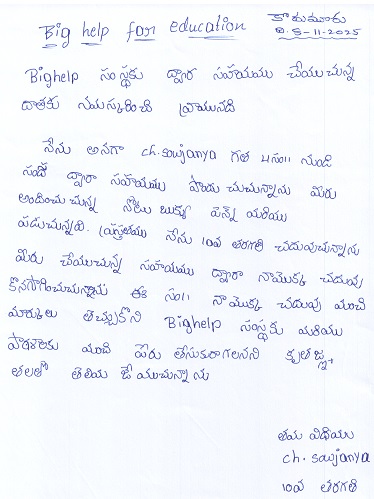 Big help for education
కొరుమూరు
D. 8-11-2025
Bighelp సంస్థకు ద్వారా సహాయము చేయుచున్న
దాతకు నమస్కరించి వ్రాయునది
నేను అనగా ch. sowjanya గత 4సం॥ నుండి
సంస్థ ద్వారా సహాయము పొందు చుచున్నాను మీరు
అందించు చున్న నోటు బుక్కు పెన్న్ మరియు
పడుచున్నవి. ప్రస్తుతము నేను 10వ తరగతి చదువుచున్నాను
మీరు చేయుచున్న సహాయము ద్వారా నామొక్క చదువు
కొనసాగించుచున్నాను ఈ సం॥ నామొక్క చదువు మంచి
మార్కులు తెచ్చుకొని Bighelp సంస్థకు మరియు
పాఠశాలకు మంచి పేరు తీసుకురాగలనని కృతజ్ఞ
తలతో తెలియ జేయుచున్నాను
తమ విధేయు
ch. sowjanya
10వ తరగతి